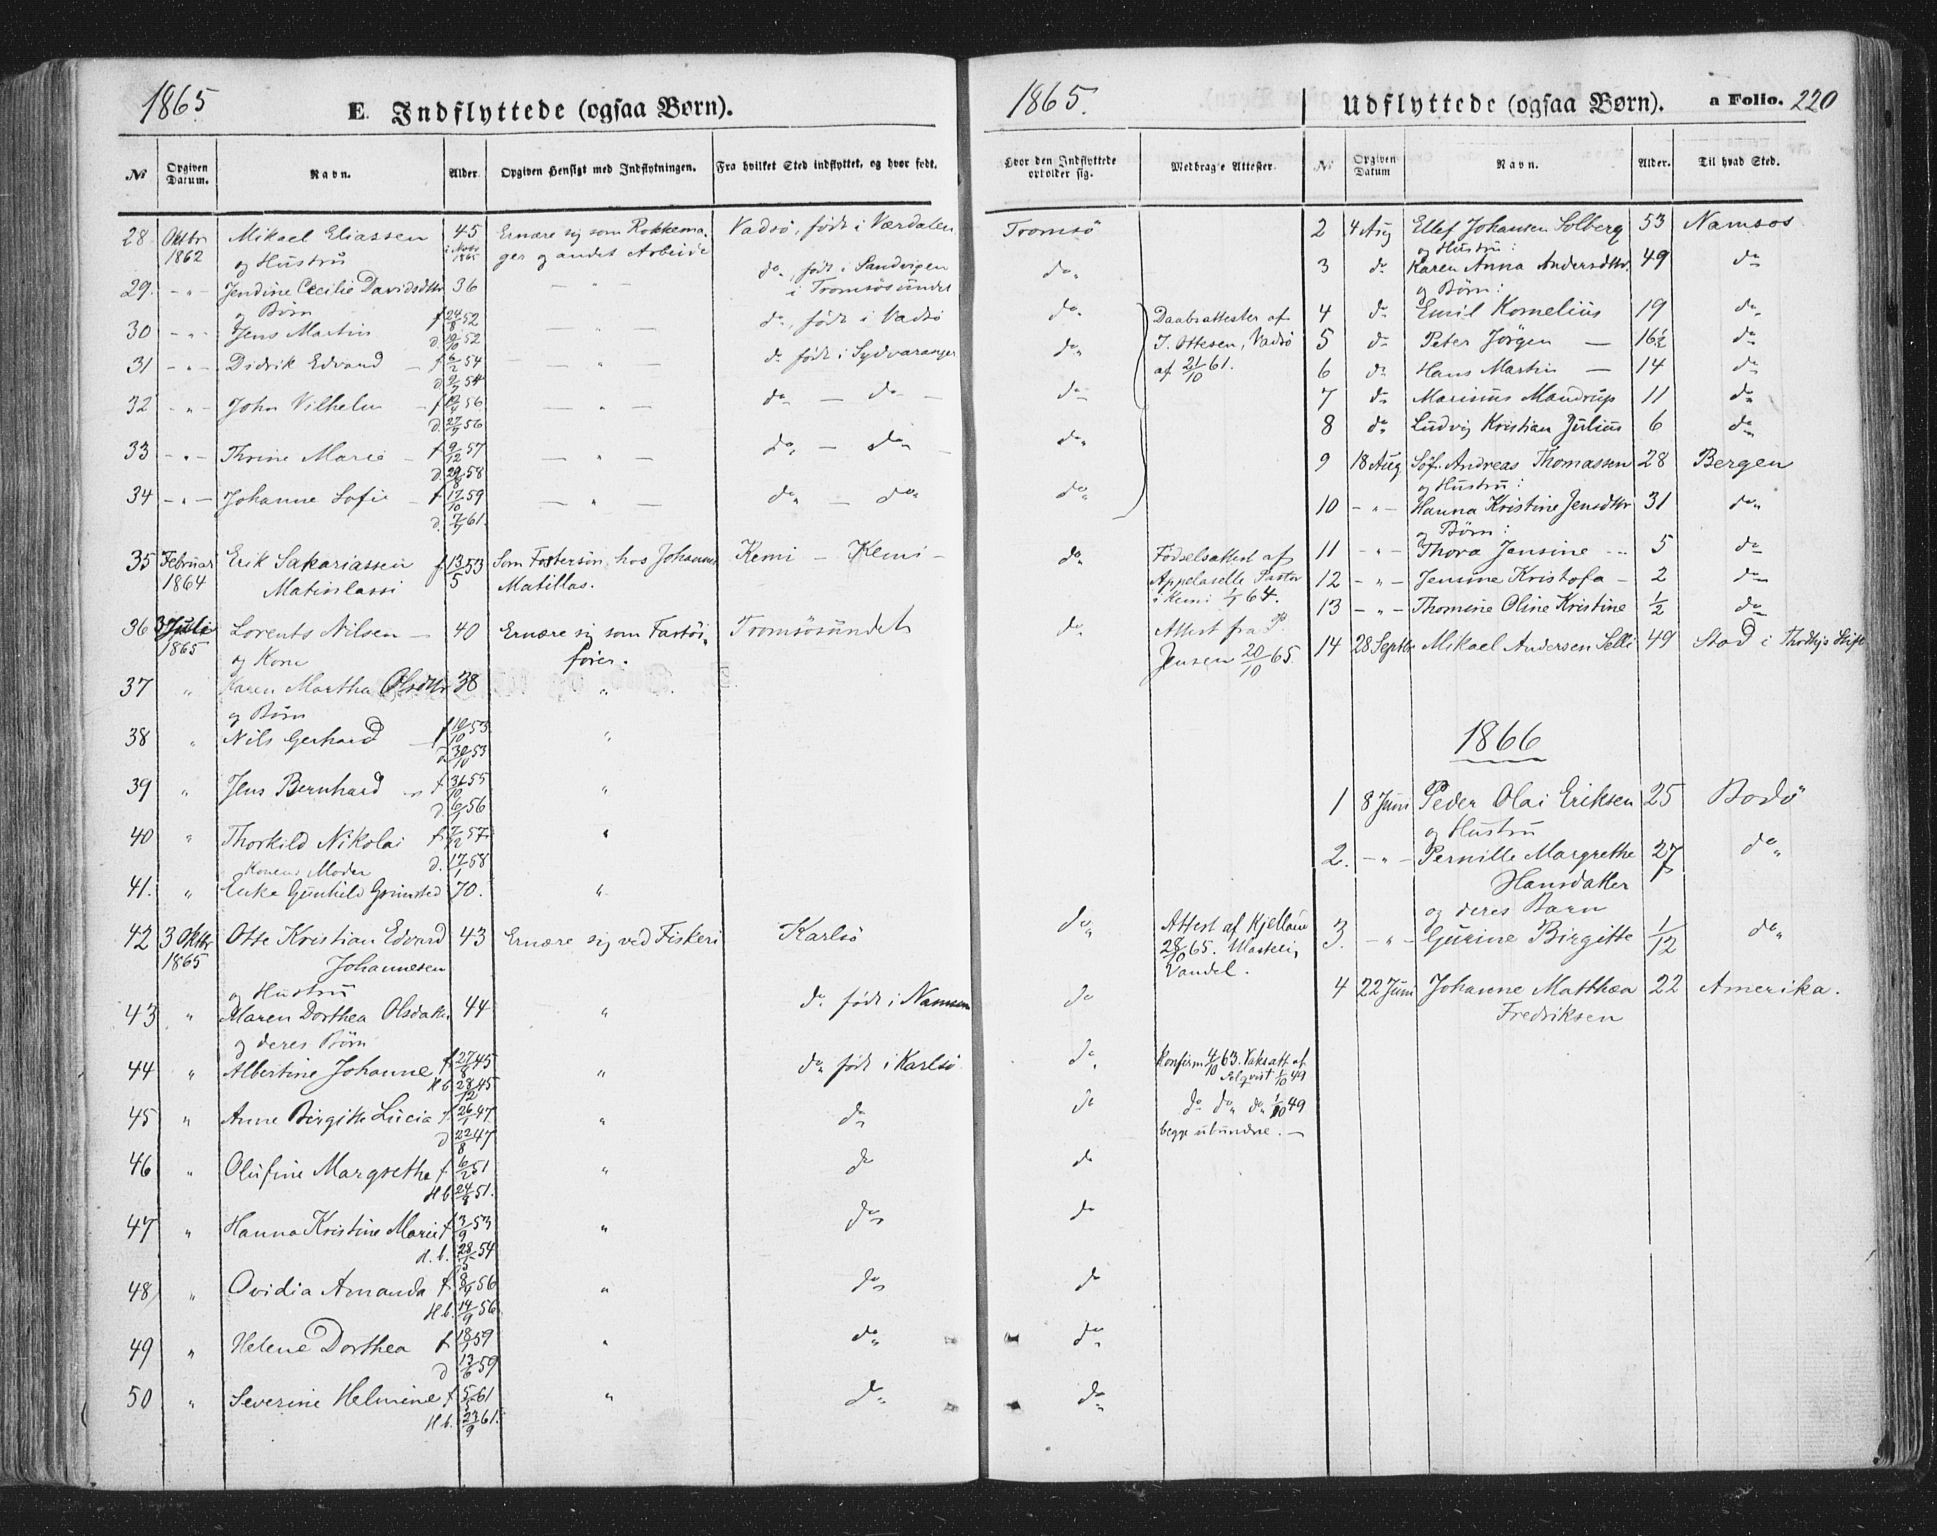 1865
E. Indflyttede (ogsaa Børn).
№ Opgiven Datum. Navn. Alder. Opgiven Hensigt med Indflytningen. Fra hvilket Sted indflyttet, og hvor født.
28 Oktbr 1862 Mikael Eliassen 45 Ernære sig som Rokkema- Vadsö, födt i Værdalen
og Hustru ger og andet Arbeide
29. - " - Jendine Cecilie Davidsdttr 36 — " — do, födt i Sandvigen i Tromsösundet
og Børn
30 - " - Jens Martin f 24/8 52 — " — do, födt i Vadsö
d. 10/10 52
31 - " - Didrik Edvard f 6/2 54 — " — do födt i Sydvaranger
d 9/7 54
32 - " - John Vilhelm f 12/4 56 — " — do — do —
d. 27/7 56
33 - " - Thrine Marie f 9/12 57 — " — do — do —
d 29/8 58
34 - " - Johanne Sofie f 17/10 59 — " — do — do
d. 7/7 61.
35 Februar 1864 Erik Sakariassen f 13/5 53 Som Fostersön hos Johannes Kemi — Kemi —
Matinlassi Matillas.
36 3 Juli 1865 Lorents Nilsen — 40 Ernære sig som Fartöi- Tromsösundet
og Kone förer.
37 " Karen Martha Olsdttr 38 "
og Børn
38 " Nils Gerhard f 10/10 53 "
d 30/10 53
39 " Jens Bernhard f 31/10 55 "
d. 6/1 56
40 " Thorkild Nikolai f 7/12 57 "
d. 17/1 58
Konens Moder
41. " Enke Gunhild Grimsted 70. "
42 3 Oktbr 1865 Otte Kristian Edvard 43 Ernære sig ved Fiskeri Karlsö
Johannesen
og Hustru
43 " Maren Dorthea Olsdatter 44 " do födt i Namsen
og deres Børn
44 " Albertine Johanne f 27/8 45 " do födt i Karlsö
H b 28/12 45
45 " Anne Birgitte Lucia f 26/1 47 " do
d 22/8 47
46 " Olufine Margrethe f 6/2 51 " do
H b 24/8 51.
47 " Hanna Kristine Marie f 3/9 53 " do
d. b. 28/5 54
48 " Ovidia Amanda f 8/4 56 " do
H b. 14/9 56
49 " Helene Dorthea f 18/1 59 " do
d 13/6 59
50 " Severine Helmine f 5/5 61 " do
H b. 29/9 61.
1865.
Udflyttede (ogsaa Børn). a Folio. 220
Hvor den Indflyttede opholder sig. Medbragte Attester. № Opgiven Datum Navn. Alder. Til hvad Sted.
Tromsö
do
do
do
do
do
do
Daabsattester af
J. Ottesen, Vadsö
af 21/10 61.
do Födselsattest af
Appelaselle Pastor
i Kemi 1/7 64.
do Attest fra P.
Jensen 20/10 65.
do Attest af Kjelland
28/10 65.
Vandel.
do
do Konfirm 4/10 63. Vaksatt af
1/10 49
do do do do 1/10 49
begge ubundne. —
do
do
do
do
do
2 4 Aug Ellef Johansen Solberg 53 Namsos
og Hustru:
3 do Karen Anna Andersdttr. 49 do
og Börn:
4 do Emil Kornelius 19 do
5 do Peter Jörgen — 16½ do
6 do Hans Martin — 14 do
7 do Marinus Mandrup 11 do
8 do Ludvig Kristian Julius 6 do
9 18 Aug Söf. Andreas Thomassen 28 Bergen
og Hustru:
10 - " - Hanna Kristine Jensdttr 31 do
og Börn:
11 - " - Thora Jensine — 5 do
12 - " - Jensine Kristofa — 2 do
13 - " - Thomine Oline Kristine ½ do
14 28 Septbr Mikael Andersen Selli 49 Stod i Thrdhjs Stift
1866
1 8 Juni Peder Olai Eriksen 25 Bodö
og Hustru
2. - " - Pernille Margrethe 27 do
Hansdatter
og deres Barn
3. - " - Gurine Birgitte 1/12 do
4 22 Juni Johanne Matthea 22 Amerika.
Fredriksen